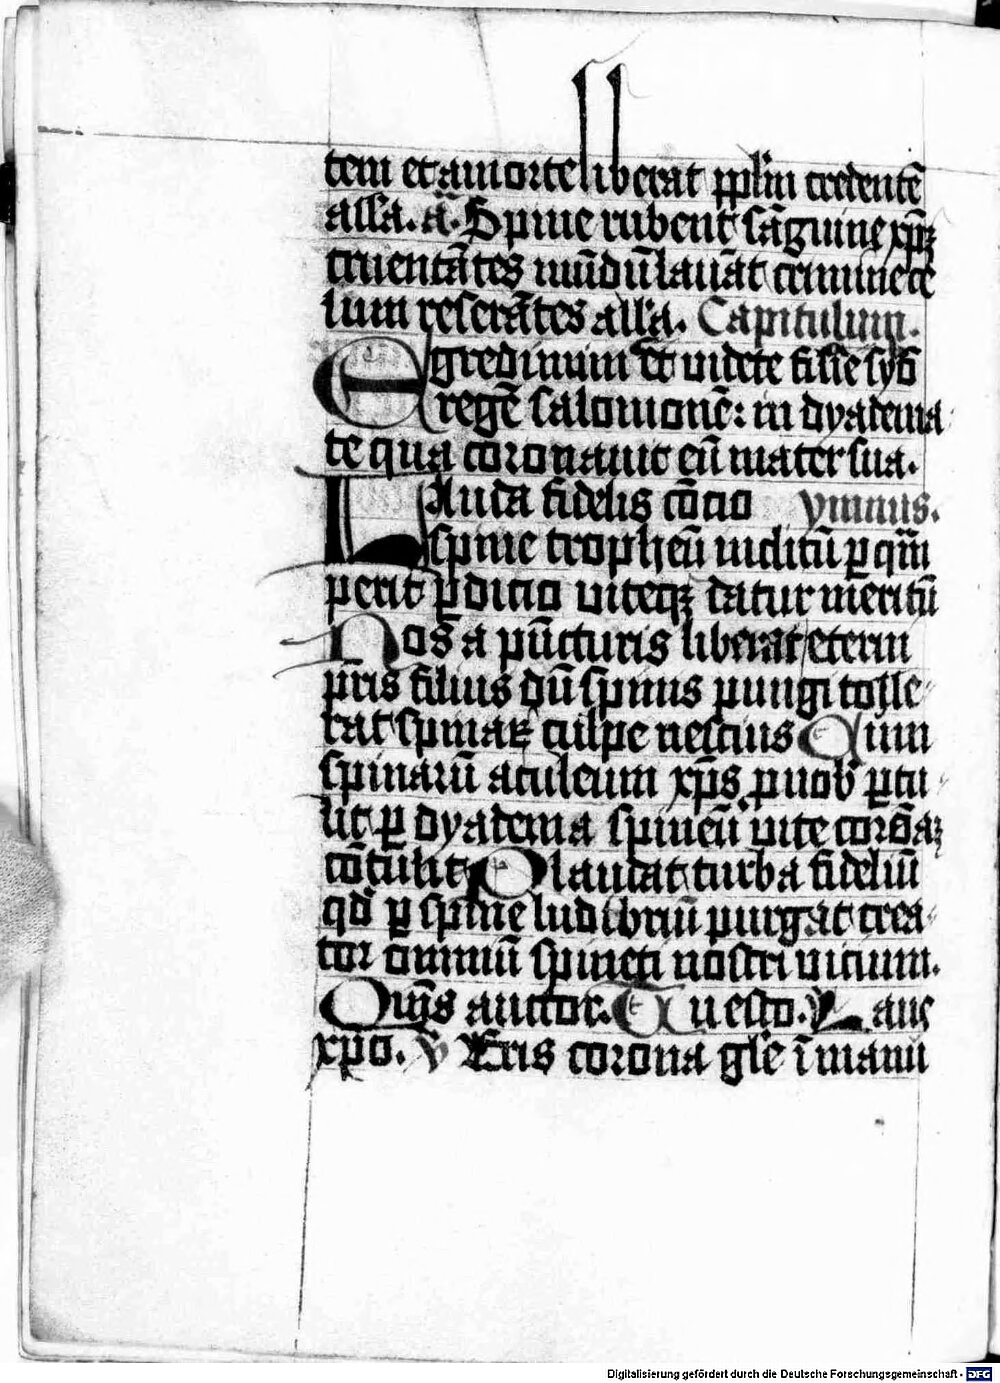 tem et a morte liberat pp̄lm credentē
alla. a̅. Spine rubent sāguine xp̄i
cruentātes mūdū lauāt crimine ce
lum reserātes alla. Capitulum.
Egredimini et uidete filie syō
regē salomonē: in dyadema
te qua coronauit eū mater sua.
Lauda fidelis cōcio ymnus.
spine tropheū inclitū ꝑ qm̄
perit ꝑdicio uiteqꝫ datur meritū
Nos a pūcturis liberat eterni
pr̄is filius dū spinis pungi tolle
rat spinaꝝ culpe nescius Cum
spinarū aculeum xp̄s ꝓ nob̄ ꝑtu
lit ꝑ dyadema spineū uite coronā
cōtulit Plaudat turba fideliū
qd̄ ꝑ spine ludibriū purgat crea
tor omniū spineti nostri uicium.
Quis auctor. Tu esto. Laus
xpō. V Eris corona gl̄e ī manu
Digitalisierung gefördert durch die Deutsche Forschungsgemeinschaft - DFG